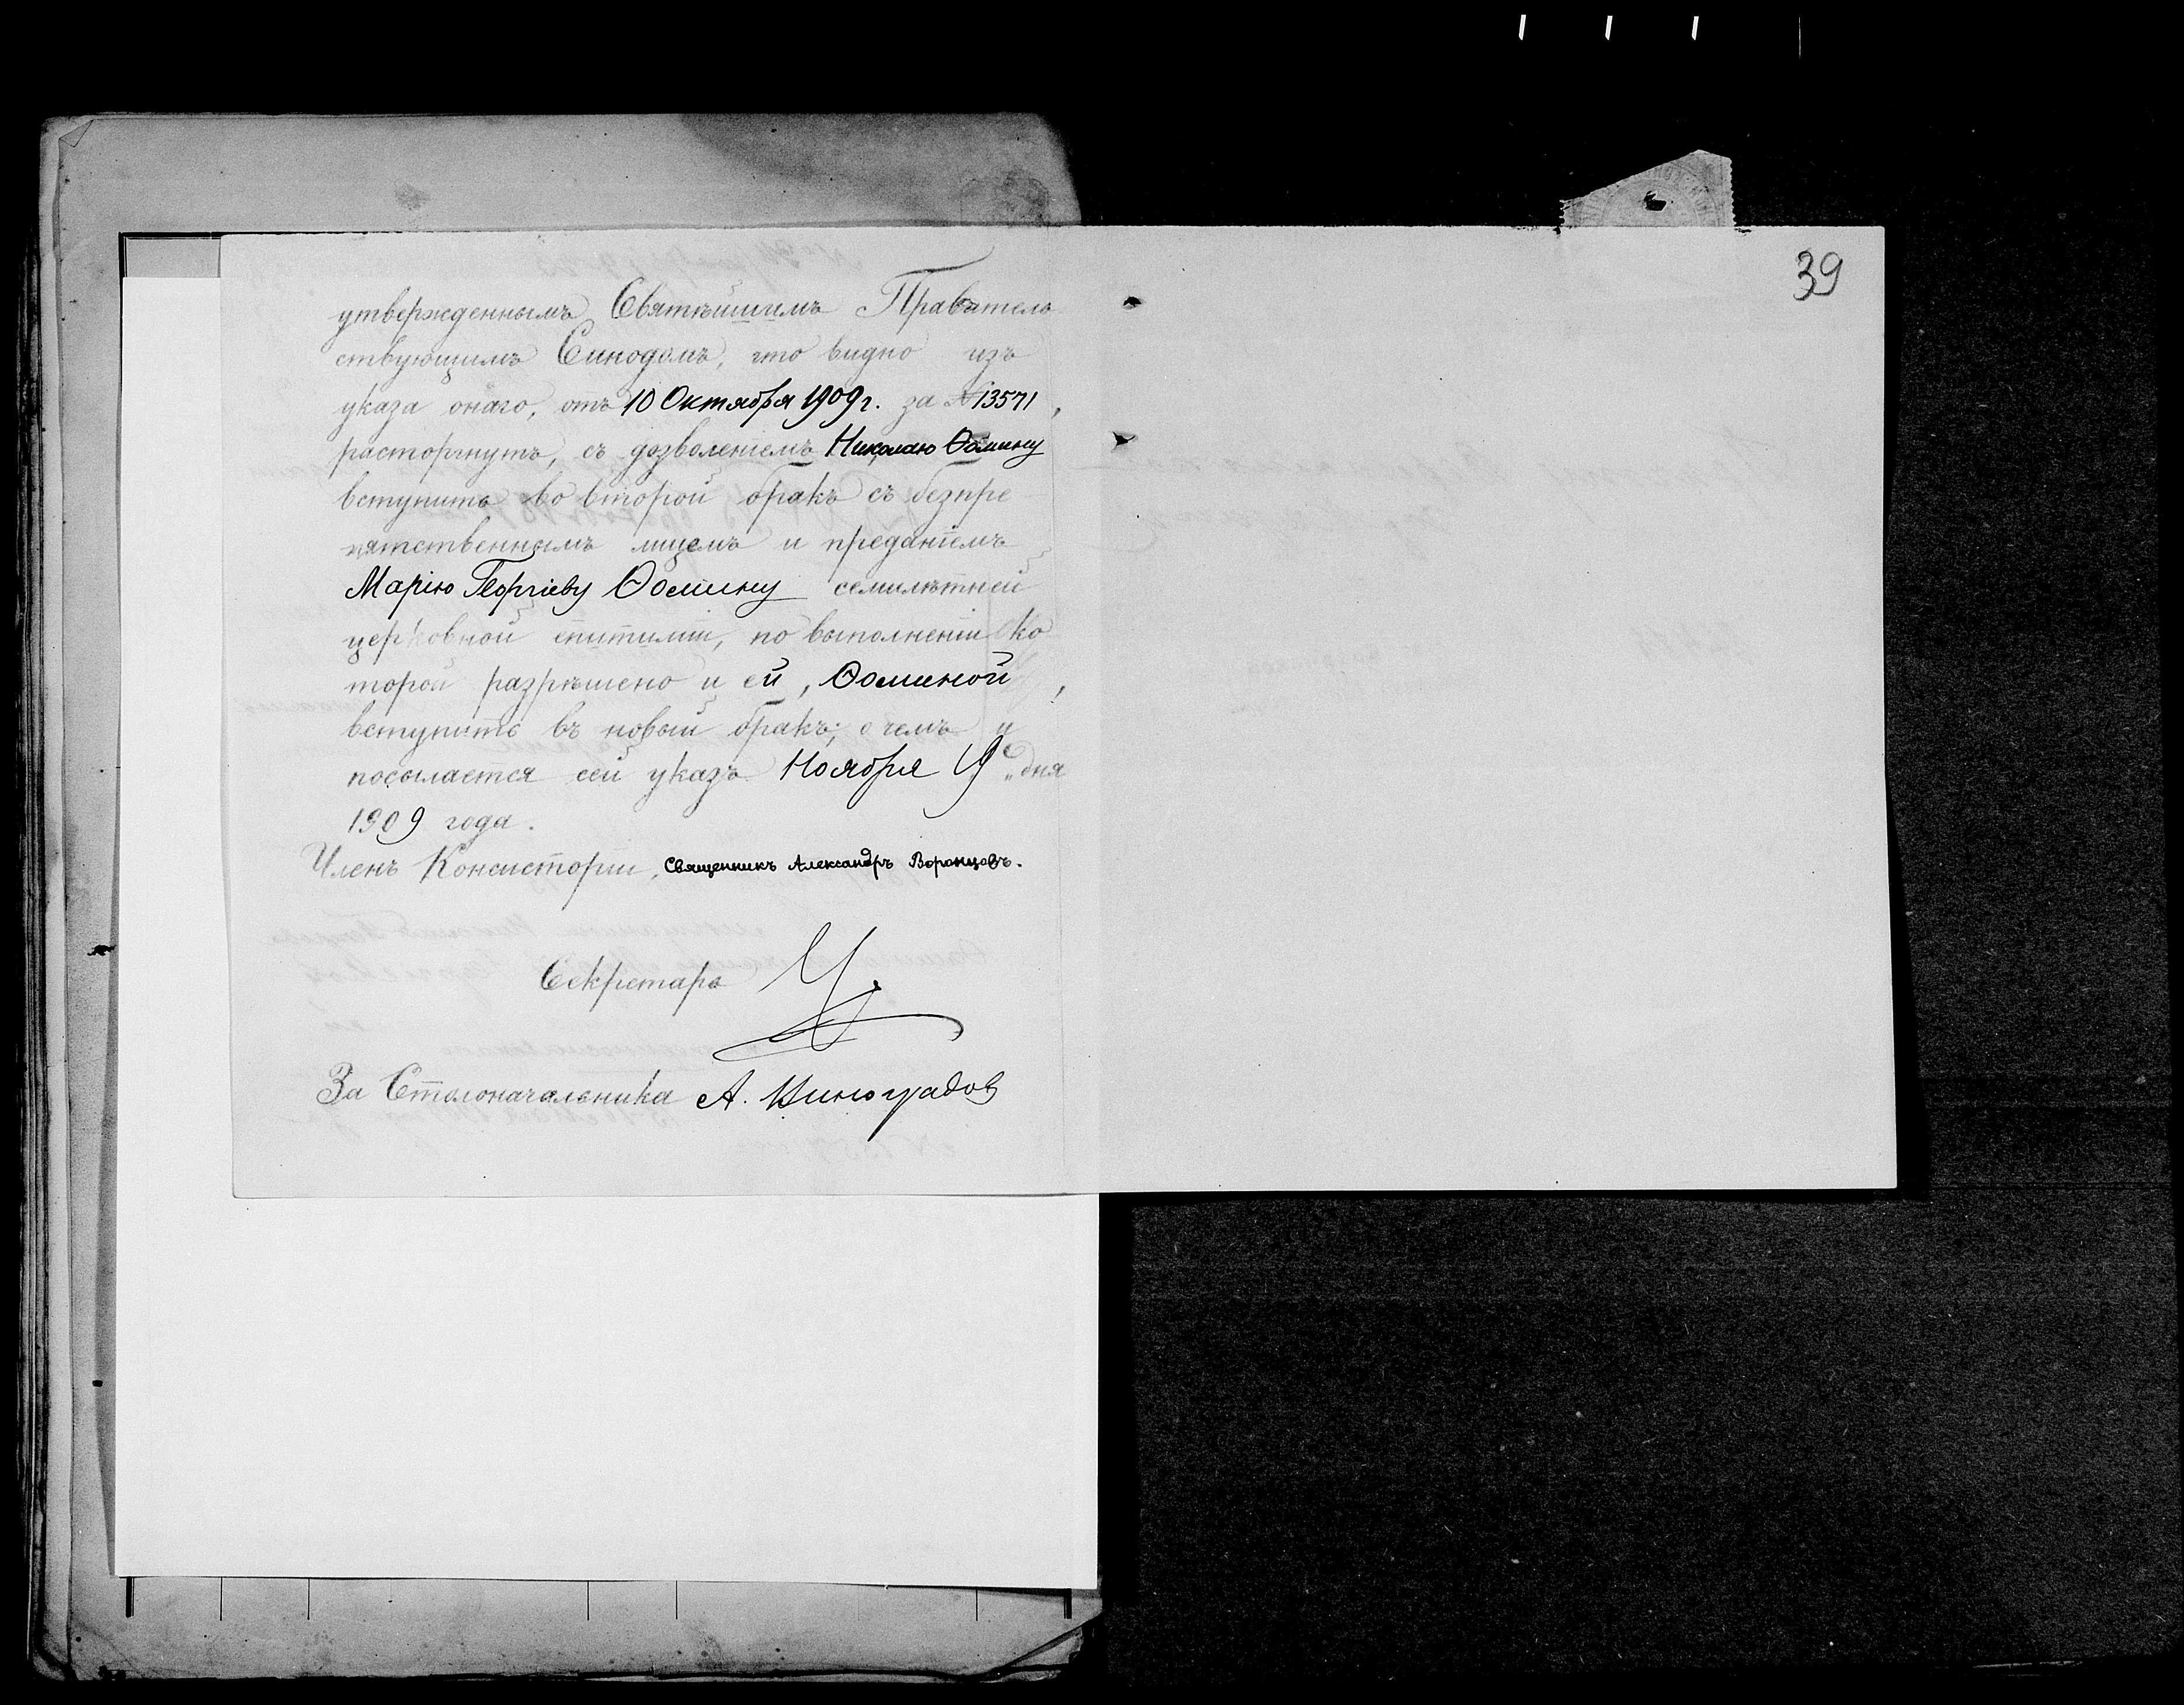 39
утвержденнымъ Святѣйшимъ Правитель
ствующимъ Синодомъ, что видно изъ
указа онаго, отъ 10 Октября 1909 г. за № 13571,
расторгнутъ, съ дозволеніемъ Николаю Ѳомину
вступить во второй бракъ съ безпре
пятственнымъ лицемъ и преданіемъ
Марію Георгіеву Ѳомину семилѣтней
церковной епитиміи, по выполненіи ко
торой разрѣшено и ей, Ѳоминой,
вступить въ новый бракъ; о чемъ и
посылается сей указъ. Ноября 19 „дня
1909 года.
Членъ Консисторіи, Священникъ Александръ Воронцовъ.
Секретарь
За Столоначальника А. Виноградов